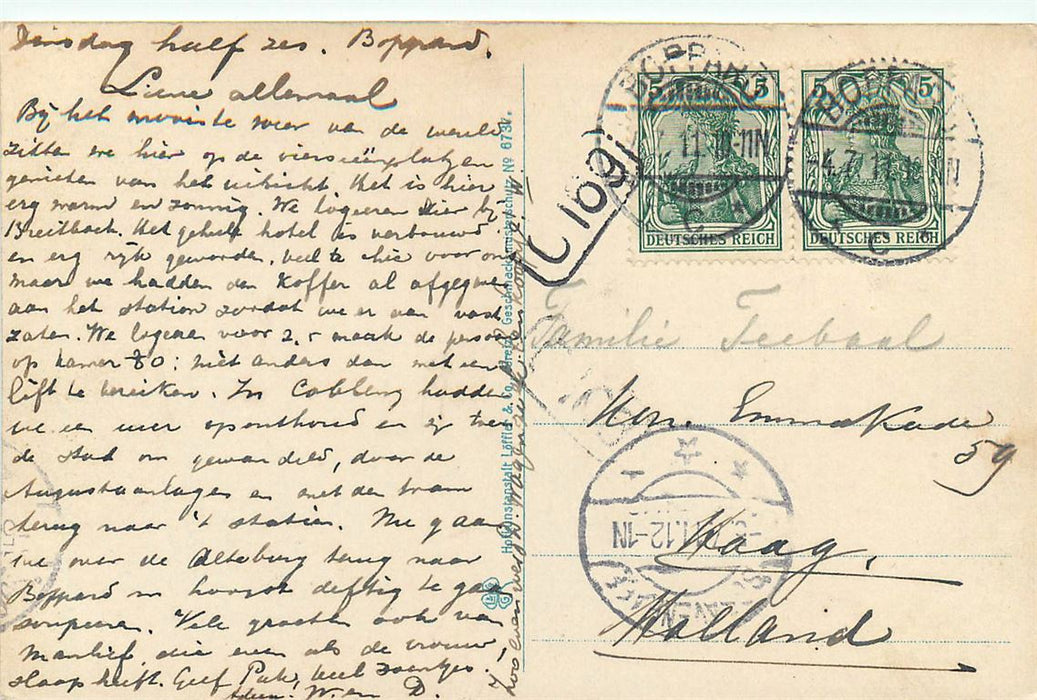 Dinsdag half zes. Boppard.
Lieve allemaal
Bij het mooiste weer van de wereld
zitten we hier op de vierseenplatzen
genieten van het uitzicht. Het is hier
erg warm en zonnig. We logeeren hier bij
Breitbach. Het geheele hotel is verbouwd
en erg rijk geworden, veel te chic voor ons
maar we hadden den koffer al afgegeven
aan het station zoodat we er aan vast
zaten. We logeeren voor 2,5 mark de persoon
op kamer 80: niet anders dan met een
lift te bereiken. In Coblenz hadden
we een uur oponthoud en zijn toen
de stad om gewandeld, door de
Augustaanlagen en met den tram
terug naar 't station. Nu gaan
we over de Alteburg terug naar
Boppard om hoogst deftig te gaan
soupeeren. Vele groeten ook van
Manlief, die even als de vrouw,
slaap heeft. Geef Puk veel zoentjes.
Adieu. W. en D.
Hofkunstanstalt Löffler & Co., Greiz. Geschmacksmusterschutz No 6731.
BOPPARD
11-11N
C
BOPPARD
-4.7.11.
N
C
5 5
DEUTSCHES REICH
5 5
DEUTSCHES REICH
Familie Teebaal
Emmakade
59
Haag.
Holland
12-1N